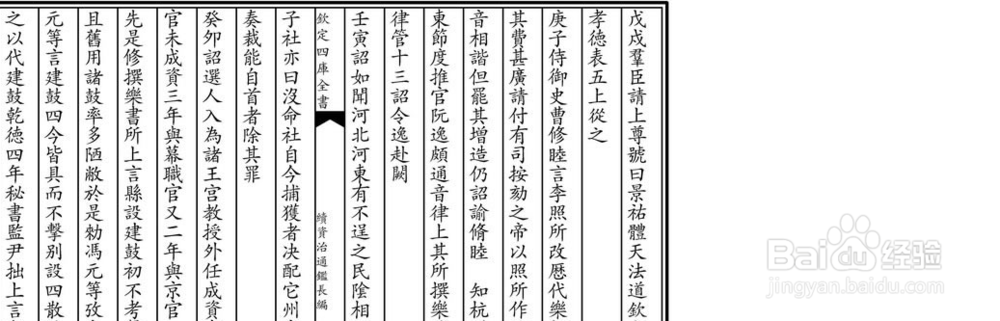 戊戌羣臣請上尊號曰景祐體天法道欽
孝德表五上從之
庚子侍御史曹修睦言李照所改厯代樂
其費甚廣請付有司按劾之帝以照所作
音相諧但罷其增造仍詔諭脩睦　知杭
東節度推官阮逸頗通音律上其所撰樂
律管十三詔令逸赴闕
壬寅詔如聞河北河東有不逞之民陰相
欽定四庫全書
續資治通鑑長編
子社亦曰沒命社自今捕獲者决配它州
奏裁能自首者除其罪
癸卯詔選人入為諸王宮教授外任成資
官未成資三年與幕職官又二年與京官
先是修撰樂書所上言縣設建鼓初不考
且舊用諸鼓率多陋敝於是勑馮元等攷
元等言建鼓四今皆具而不擊别設四散
之以代建鼓乾德四年秘書監尹拙上言
Baidu经验
jingyan.baidu.com